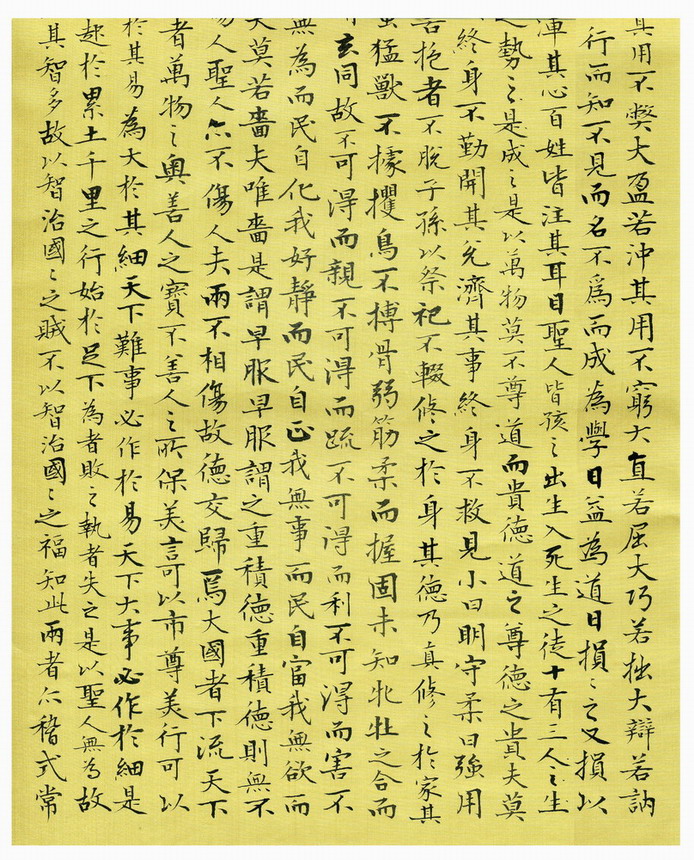 其用不弊大盈若沖其用不窮大直若屈大巧若拙大辯若訥
行而知不見而名不爲而成為學日益為道日損〻之又損以
渾其心百姓皆注其耳目聖人皆孩之出生入死生之徒十有三人之生
之勢之是成之是以萬物莫不尊道而貴德道之尊德之貴夫莫
終身不勤開其兌濟其事終身不救見小曰明守柔曰強用
善抱者不脫子孫以祭祀不輟修之於身其德乃真修之於家其
猛獸不據攫鳥不搏骨弱筋柔而握固未知牝牡之合而
玄同故不可得而親不可得而疏不可得而利不可得而害不
無為而民自化我好靜而民自正我無事而民自富我無欲而
天莫若嗇夫唯嗇是謂早服早服謂之重積德重積德則無不
傷人聖人亦不傷人夫兩不相傷故德交歸焉大國者下流天下
者萬物之奧善人之寶不善人之所保美言可以市尊美行可以
於其易為大於其細天下難事必作於易天下大事必作於細是
起於累土千里之行始於足下為者敗之執者失之是以聖人無為故
其智多故以智治國〻之賊不以智治國〻之福知此兩者亦稽式常